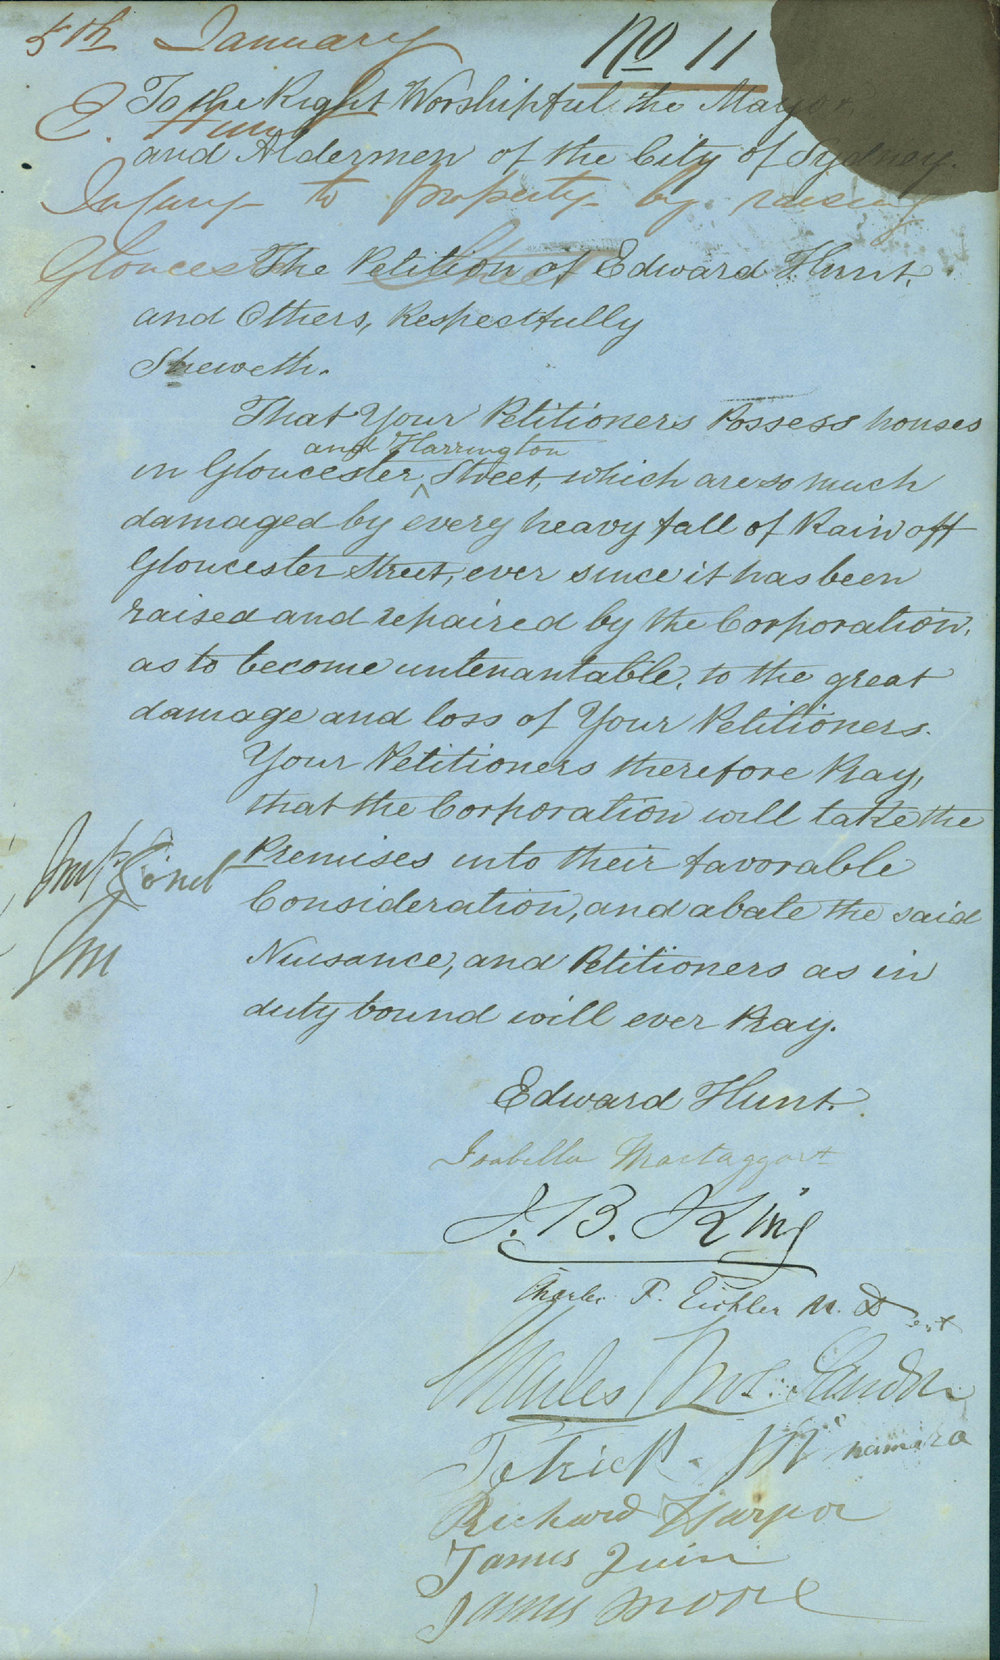 5th January
No 11
To the Right Worshipful the Mayor
E. Hunt
and Aldermen of the City of Sydney.
Injury to property by raising
Gloucester Street
The Petition of Edward Hunt,
and Others, Respectfully
Sheweth.
That Your Petitioners Possess houses
and Harrington
in Gloucester ^ Street, which are so much
damaged by every heavy fall of Rain off
Gloucester Street, ever since it has been
raised and repaired by the Corporation,
as to become untenantable, to the great
damage and loss of Your Petitioners.
Your Petitioners therefore Pray,
that the Corporation will take the
Premises into their favorable
Consideration, and abate the said
Nuisance, and Petitioners as in
duty bound will ever Pray.
Edward Hunt.
Isabella Mactaggart
J. B. King
Charles F. Eichler M. D
Charles
Patrick Mcnamara
Richard Harper
James Quin
James Moore